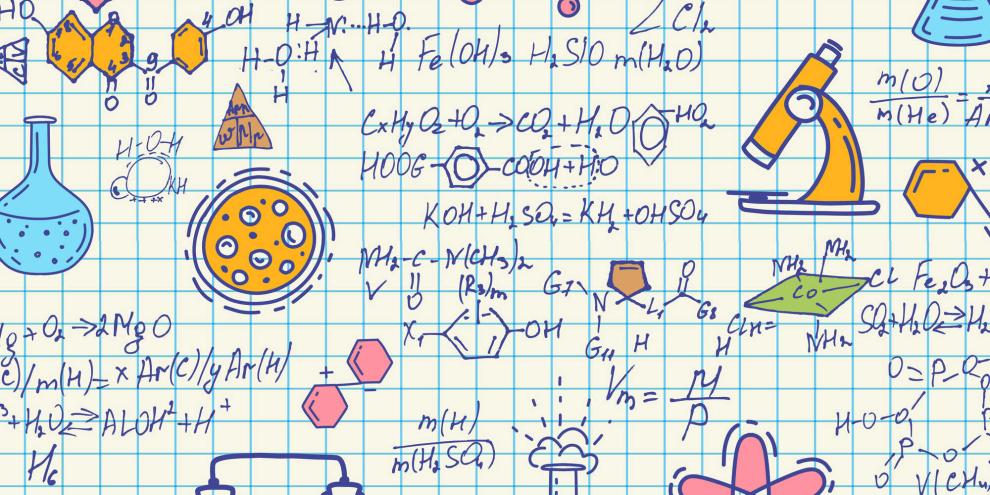 HO
OH
H-N:...H-O.
Cl₂
H-O:H
H
H
Fe(OH)₃ H₂SIO m(H₂O)
O O
m(O)
m(He) =
CxHyO₂+O₂→CO₂+H₂O
HO₂
H-O-H
KH
HOOG
COOH+H:O
KOH+H₂SO₄=KH₂+OHSO₄
NH₂-C-N(CH₃)₂
V O
(R₃)m
X₁ -OH
G₇
N
L₁
O
G₈
G₁₁ H
H
NH₂
NH₂
Co
CL
NH₂
Fe₂O₃+
SO₂+H₂O⇄H₂
g+O₂→2MgO
c)/m(H)=x Ar(C)/yAr(H)
+H₂O⇄ALOH²+H⁺
H₆
+
−
m(H)
m(H₂SO₄)
Vm= M
P
O=P-O
H-O-O
P
O
O
V(CH₄)